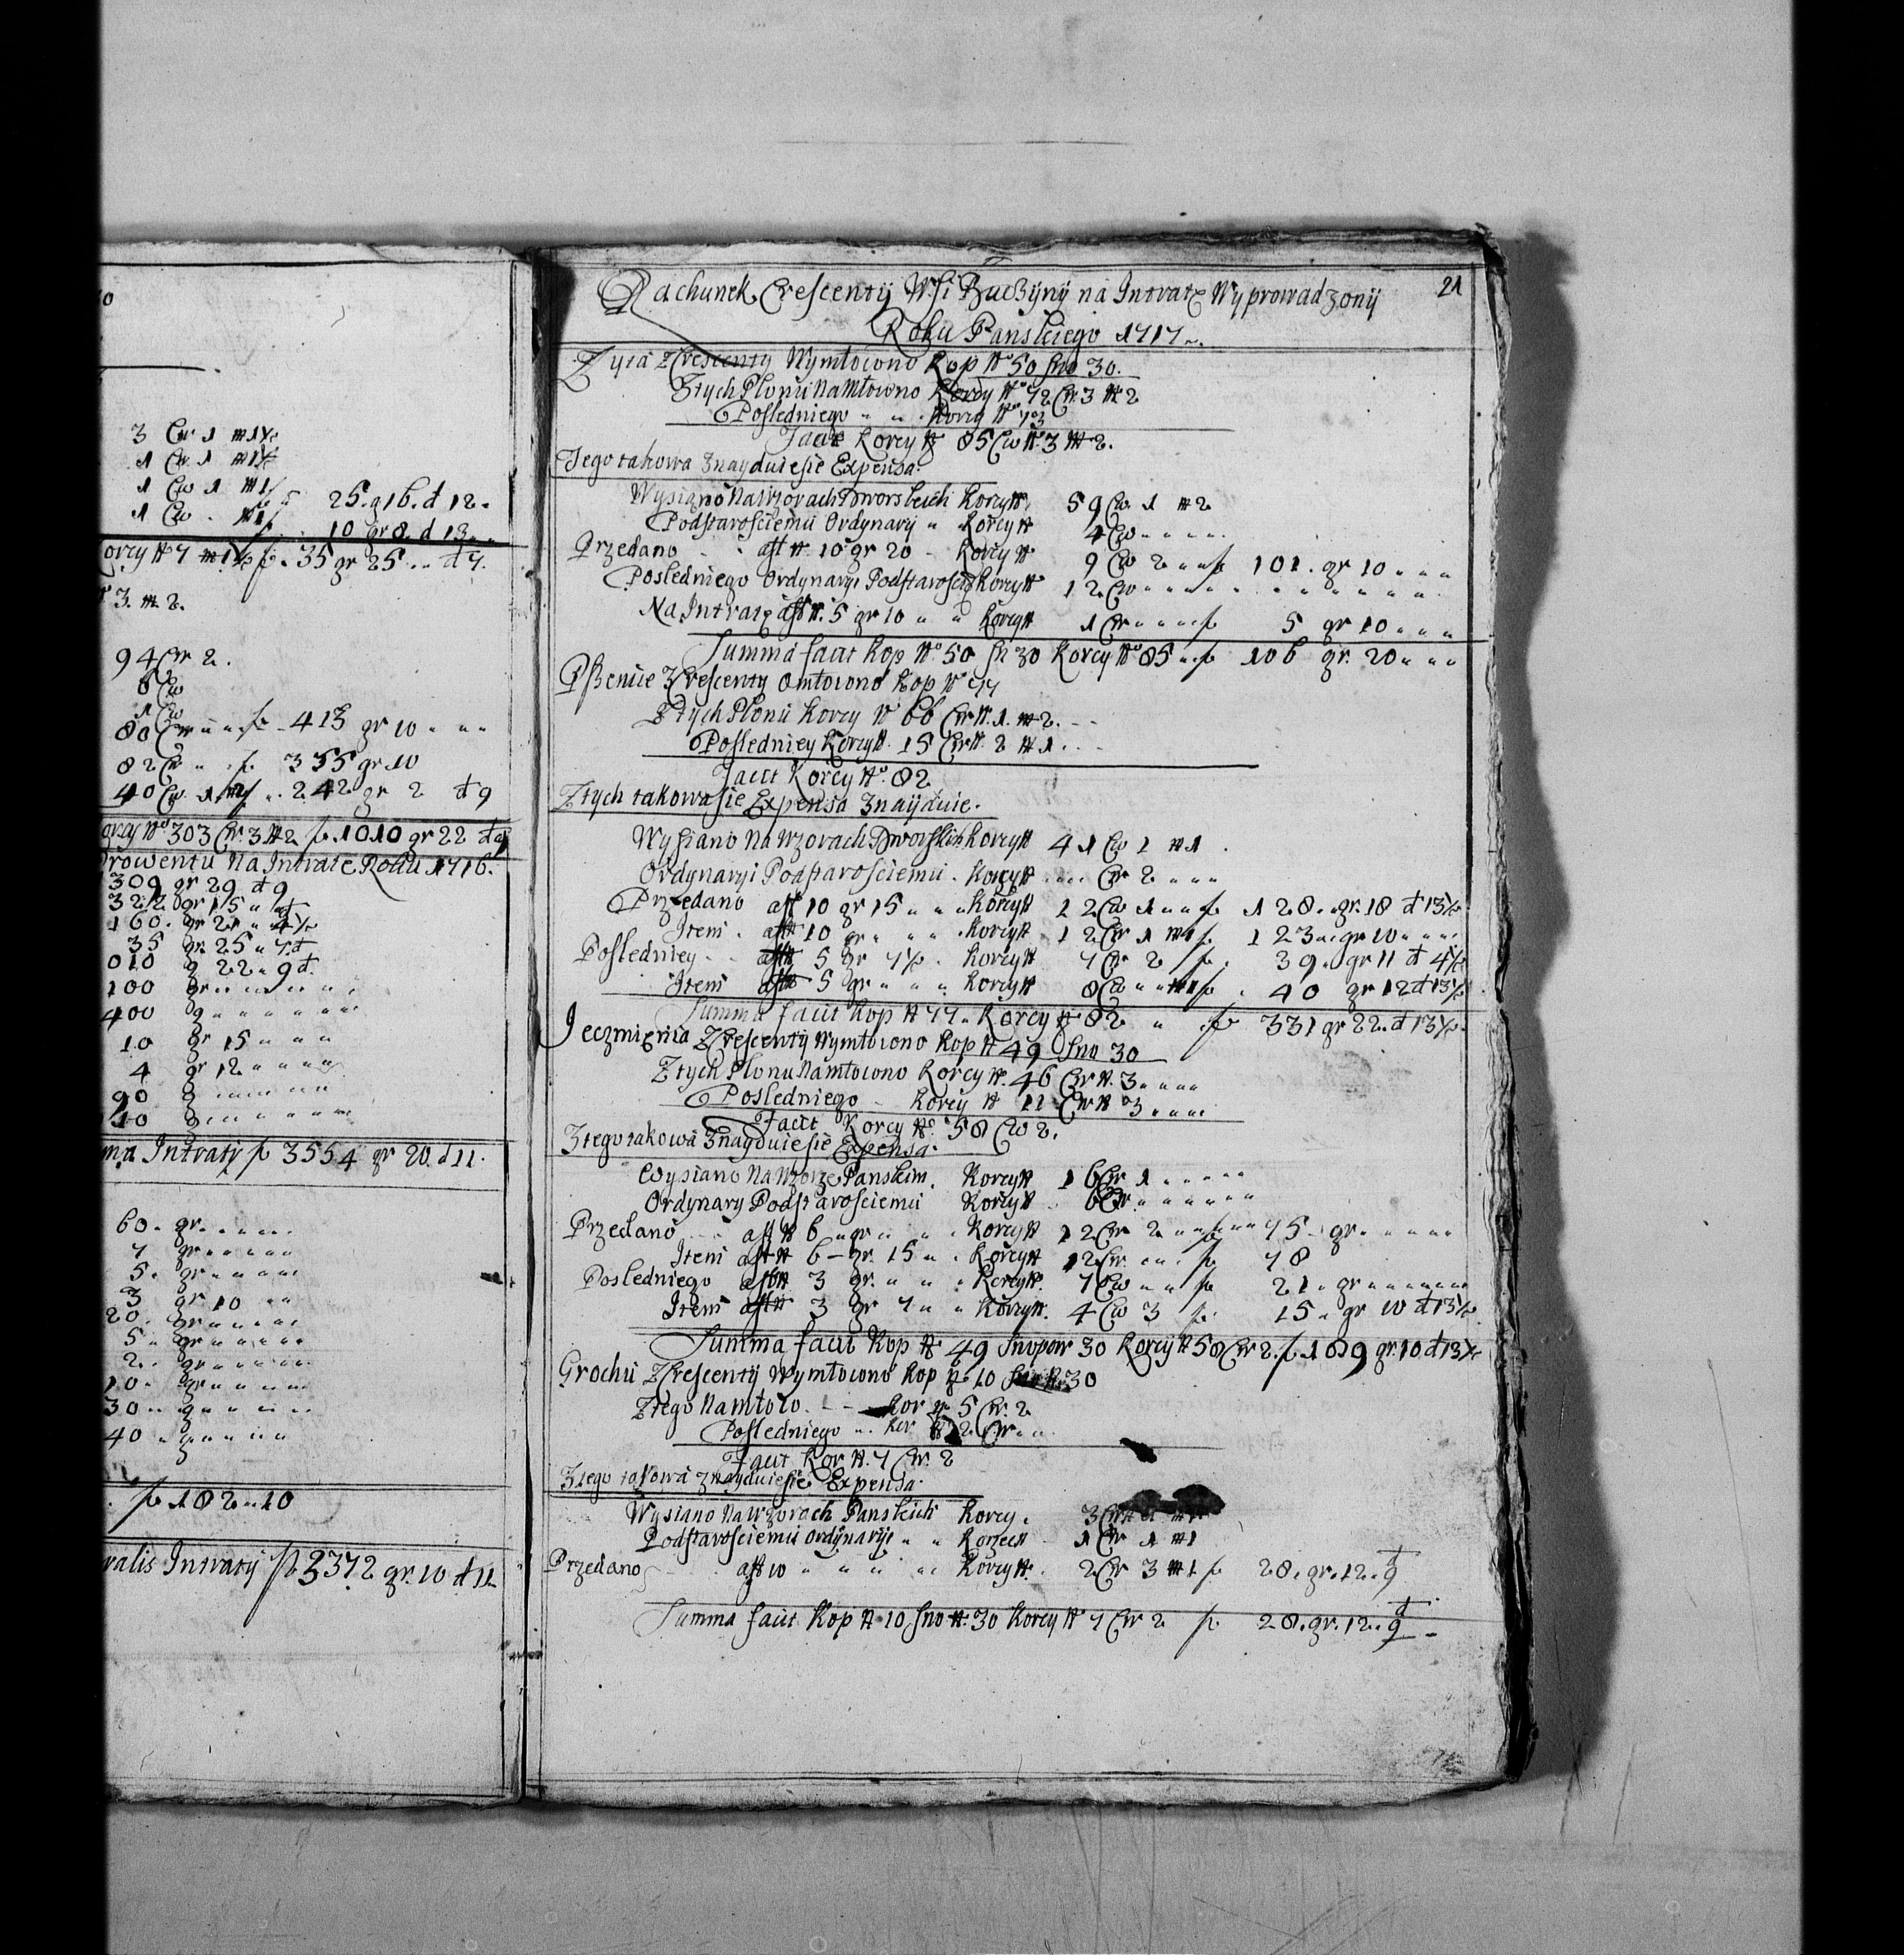 3 Cw 1 m 1½
1 Cw 1 m 1½
1 Cw 1 m 1 25. g 16. d 12.
1 Cw . 10 gr 8 d 13
orcy № 7 35 gr 25 d 7.
3. m 2.
94 Cw 2.
8 Cw
1 Cw
80 Cw 413 gr 10
82 Cw 355 gr 10
40 Cw 1 242 gr 2 d 9
orcy № 303 Cw 3 m 2 fl. 1010 gr 22 d 9
rowentu Na Intratę Roku 1716.
309 gr 29 d 9
322 gr 15
160. gr 21 4½
35 gr 25 7 d
010 g 22 9 d.
100 gr
400 g
10 gr 15
4 gr 12
90 g
10 g
ma Intraty fl 3554 gr 20. d 11.
60. gr.
7 gr
5. gr
3 gr 10
20. gr
5 gr
2. gr
10. gr
30 g
40 g
fl 182 10
ralis Intraty fl 3372 gr. 10 d 11
21
Rachunek Crescentÿ Wsi Buczÿnÿ na Intratę Wyprowadzonÿ
Roku Panskiego 1717
Zyta z Crescenty Wymłocono Kop № 50 Sno 30.
Ztych Plonu Namłocono Korcy № 72 Cw. 3 m 2
Posledniego Korcy № 13
Facit Korcy № 85 Cw № 3 m 2.
Tego takowa Znayduiesie Expensa.
Wysiano Na Wzorach Dworskich Korcy № 59 Cw. 1 m 2
Podstarosciemu Ordynaryi Korcy № 4 Cw
Przedano a fl № 10 gr 20 Korcy № 9 Cw 2 fl 101. gr 10
Posledniego Ordynaryi Podstarosc Korcy № 12 Cw
Na Intratę a fl №. 5 gr 10 Korcy № 1 Cw fl 5 gr 10
Summa facit Kop № 50 Sn 30 Korcy № 85 fl 106 gr. 20
Pszenice Z Crescenty Omłocono Kop № 77
Ztych Plonu Korcy № 66 Cw №. 1. m 2.
Posledniey Korcy №. 15 Cw №. 2 m 1.
Facit Korcy №. 82
Ztych takowasie Expensa Znaÿduie.
Wysiano Na Wzorach Dworskich Korcy № 41 Cw 1 m 1
Ordynaryi Podstarosciemu . Korcy № Cw 2
Przedano a fl 10 gr 15 Korcy № 12 Cw 1 fl 128. gr. 18 d 13½
Item . a fl 10 gr Korcy № 12 Cw 1 m 1 fl 123 gr 10
Posledniey a fl 5 gr 7½ . Korcy № 7 Cw 2 fl. 39. gr 11 d 4½
Item a fl 5 gr Korcy № 8 Cw m 1 fl . 40 gr 12 d 13½
Summa facit Kop № 77 Korcy № 82 fl 331 gr 22. d 13½
Jeczmięnia Z Crescentÿ Wymłocono Kop № 49 Sno 30
Ztych Plonu Namłocono Korcy №. 46 Cw №. 3
Posledniego Korcy № 11 Cw № 3
Facit Korcy № 58 Cw 2.
Ztego takowa Znayduiesie Expensa.
Wysiano Na Wzorze Panskim. Korcy № 16 Cw 1
Ordynary Podstarosciemu Korcy № 6 Cw.
Przedano a fl № 6 gr Korcy № 12 Cw 2 fl 75 gr.
Item a fl № 6 gr. 15 Korcy № 12 Cw. fl 78
Posledniego a fl № 3 gr. Korcy №. 7 Cw fl 21. gr
Item a fl № 3 gr 7 Korcy №. 4 Cw 3 fl. 15. gr 10 d 13½
Summa facit Kop № 49 Snopow 30 Korcÿ № 58 Cw 2. fl. 189 gr. 10 d 13½
Grochu Z Crescentÿ Wymłocono Kop № 10 30
Ztego Namłoco. Kor № 5 Cw. 2
Posledniego Kor № 2 Cw
Facit Kor №. 7 Cw. 2
Ztego takowa znayduiesie Expensa.
Wysiano Na Wzorach Panskich Korcy. 3 Cw
Podstarosciemu Ordÿnarÿi Korzec № 1 Cw 1 m 1
Przedano a fl 10 Korcy №. 2 Cw 3 m 1 fl 28. gr. 12. d 9
Summa facit Kop № 10 Sno №. 30 Korcy № 7 Cw 2 fl 28. gr. 12. d 9